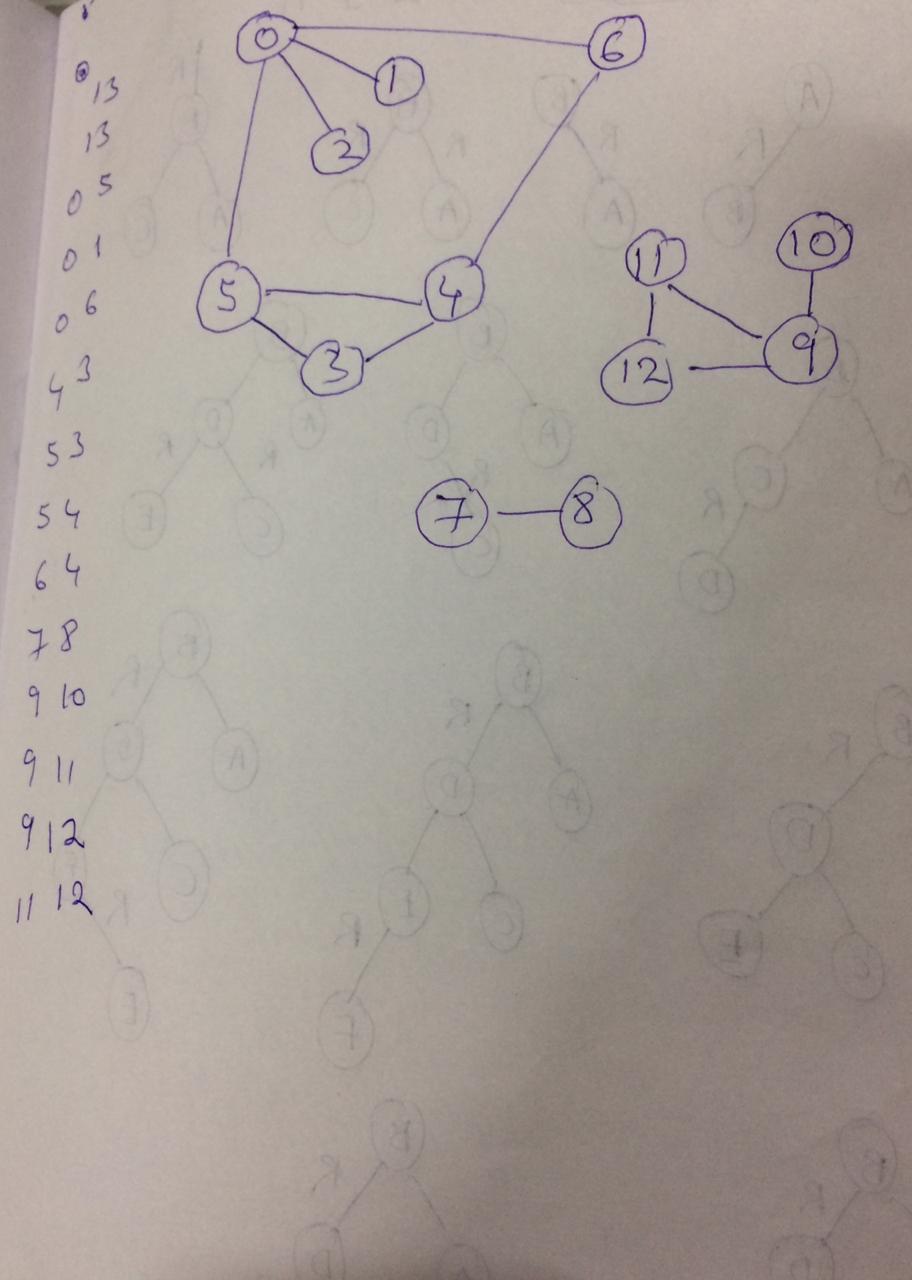 13
13
0 5
0 1
0 6
4 3
5 3
5 4
6 4
7 8
9 10
9 11
9 12
11 12
0
6
1
2
5
4
3
11
10
12
9
7
8